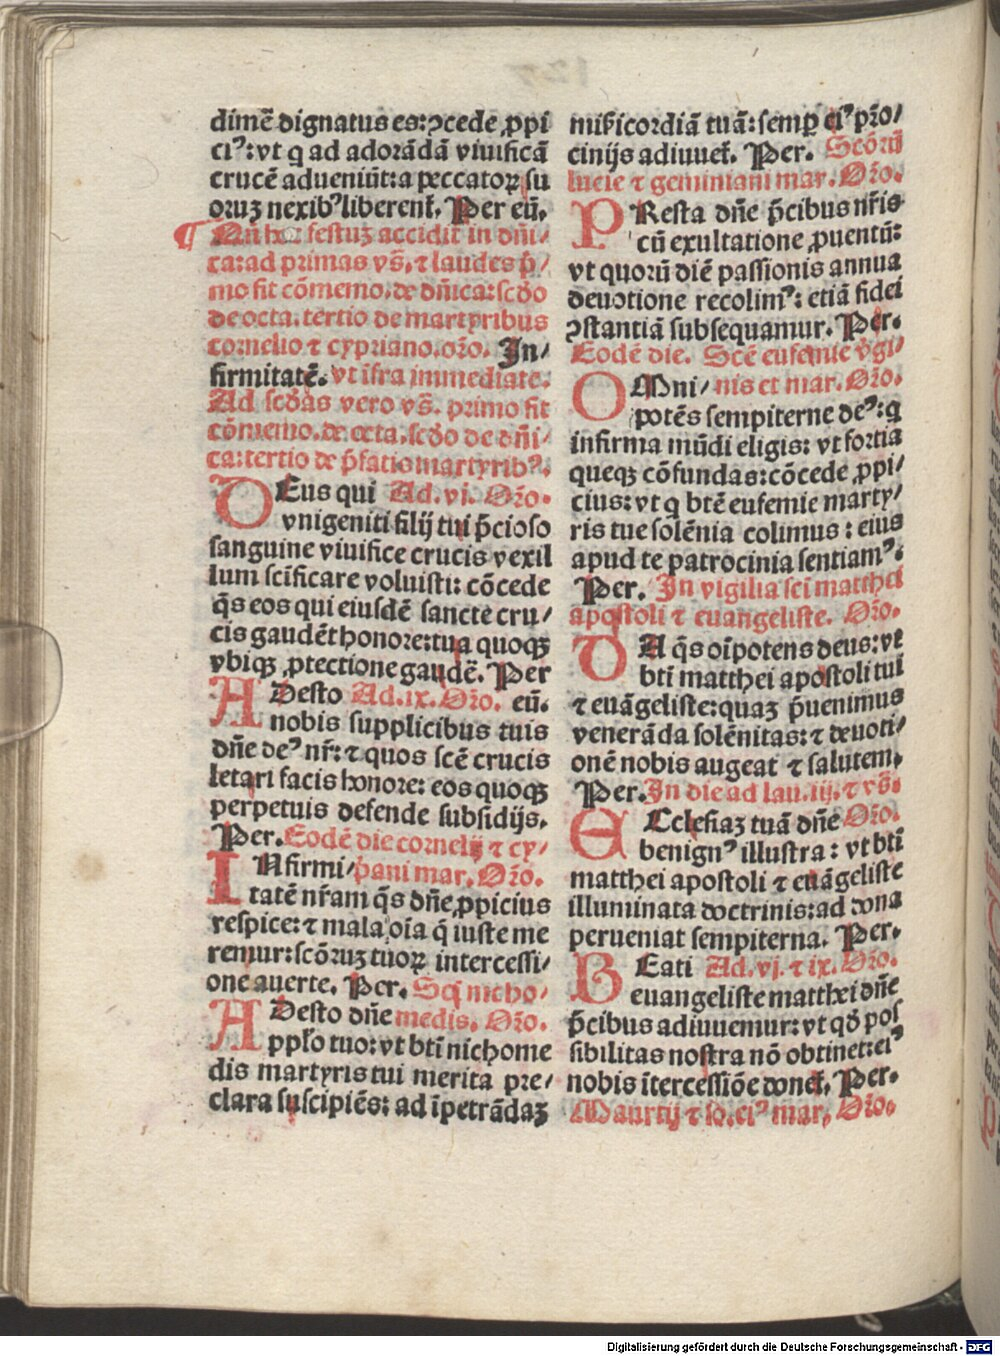 dimē dignatus es: ꝯcede ꝓpi
ciꝰ: vt q ad adorādā viuificā
crucē adueniūt: a peccatoꝝ su
oruꝫ nexibꝰ liberent᷑. Per eū.
¶ Qn̄ hoc festuꝫ accidit in dn̄i/
ca: ad primas vs̄. ⁊ laudes p̄/
mo fit cōmemo. de dn̄ica: scd̄o
de octa. tertio de martyribus
cornelio ⁊ cypriano. oŕo. In/
firmitatē. vt īfra immediate.
Ad scd̄as vero vs̄. primo fit
cōmemo. de octa. scd̄o de dn̄i/
ca: tertio de p̄fatis martyribꝰ.
DEus qui Ad. vi. Oŕo.
vnigeniti filij tui p̄cioso
sanguine viuifice crucis vexil
lum scīficare voluisti: cōcede
q̄s eos qui eiusdē sancte cru/
cis gaudēt honore: tua quoqꝫ
vbiqꝫ ꝓtectione gaudē. Per
ADesto Ad. ix. Oŕo. eū.
nobis supplicibus tuis
dn̄e deꝰ nr̄: ⁊ quos scē crucis
letari facis honore: eos quoqꝫ
perpetuis defende subsidijs.
Per. Eodē die cornelij ⁊ cy/
INfirmi/ pani mar. Oŕo.
tatē nr̄am q̄s dn̄e ꝓpicius
respice: ⁊ mala oīa q̄ iuste me
remur: scōruꝫ tuoꝝ intercessi/
one auerte. Per. Scī nicho/
ADesto dn̄e medis. Oŕo.
ppl̄o tuo: vt btī nichome
dis martyris tui merita pre/
clara suscipiēs: ad īpetrādaꝫ
mīsicordiā tuā: semꝑ eiꝰ pŕo/
cinijs adiuuet᷑. Per. Scōrū
lucie ⁊ geminiani mar. Oŕo.
PResta dn̄e p̄cibus nr̄is
cū exultatione ꝓuentū:
vt quorū diē passionis annua
deuotione recolimꝰ: etiā fidei
ꝯstantiā subsequamur. Per.
Eodē die. Scē eufemie v̄gi/
OMni/ nis et mar. Oŕo.
potēs sempiterne deꝰ: q
infirma mūdi eligis: vt fortia
queqꝫ cōfundas: cōcede ꝓpi/
cius: vt q btē eufemie marty/
ris tue solēnia colimus: eius
apud te patrocinia sentiamꝰ.
Per. In vigilia scī matthei
apostoli ⁊ euangeliste. Oŕo.
DA q̄s oīpotens deus: vt
bti matthei apostoli tui
⁊ euāgeliste: quaꝫ p̄uenimus
venerāda solēnitas: ⁊ deuoti/
onē nobis augeat ⁊ salutem.
Per. In die ad lau. iij. ⁊ vs̄.
ECclesiaꝫ tuā dn̄e Oŕo.
benignꝰ illustra: vt bti
matthei apostoli ⁊ euāgeliste
illuminata doctrinis: ad dona
perueniat sempiterna. Per.
BEati Ad. vj. ⁊ ix. Oŕo.
euangeliste matthei dn̄e
p̄cibus adiuuemur: vt qd̄ pos
sibilitas nostra nō obtinet: eiꝰ
nobis ītercessiōe donet᷑. Per.
Mauritij ⁊ so. eiꝰ mar. Oŕo.
Digitalisierung gefördert durch die Deutsche Forschungsgemeinschaft - DFG